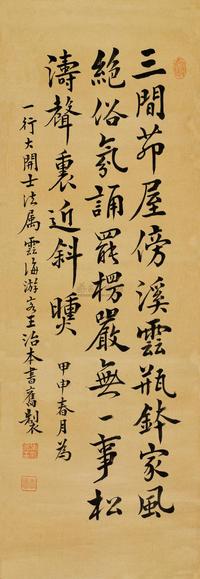 三間茆屋傍溪雲瓶鉢家風
絕俗氛誦罷楞嚴無一事松
濤聲裏近斜曛 甲申春月為
一行大開士法属雲海游客王治本書舊製